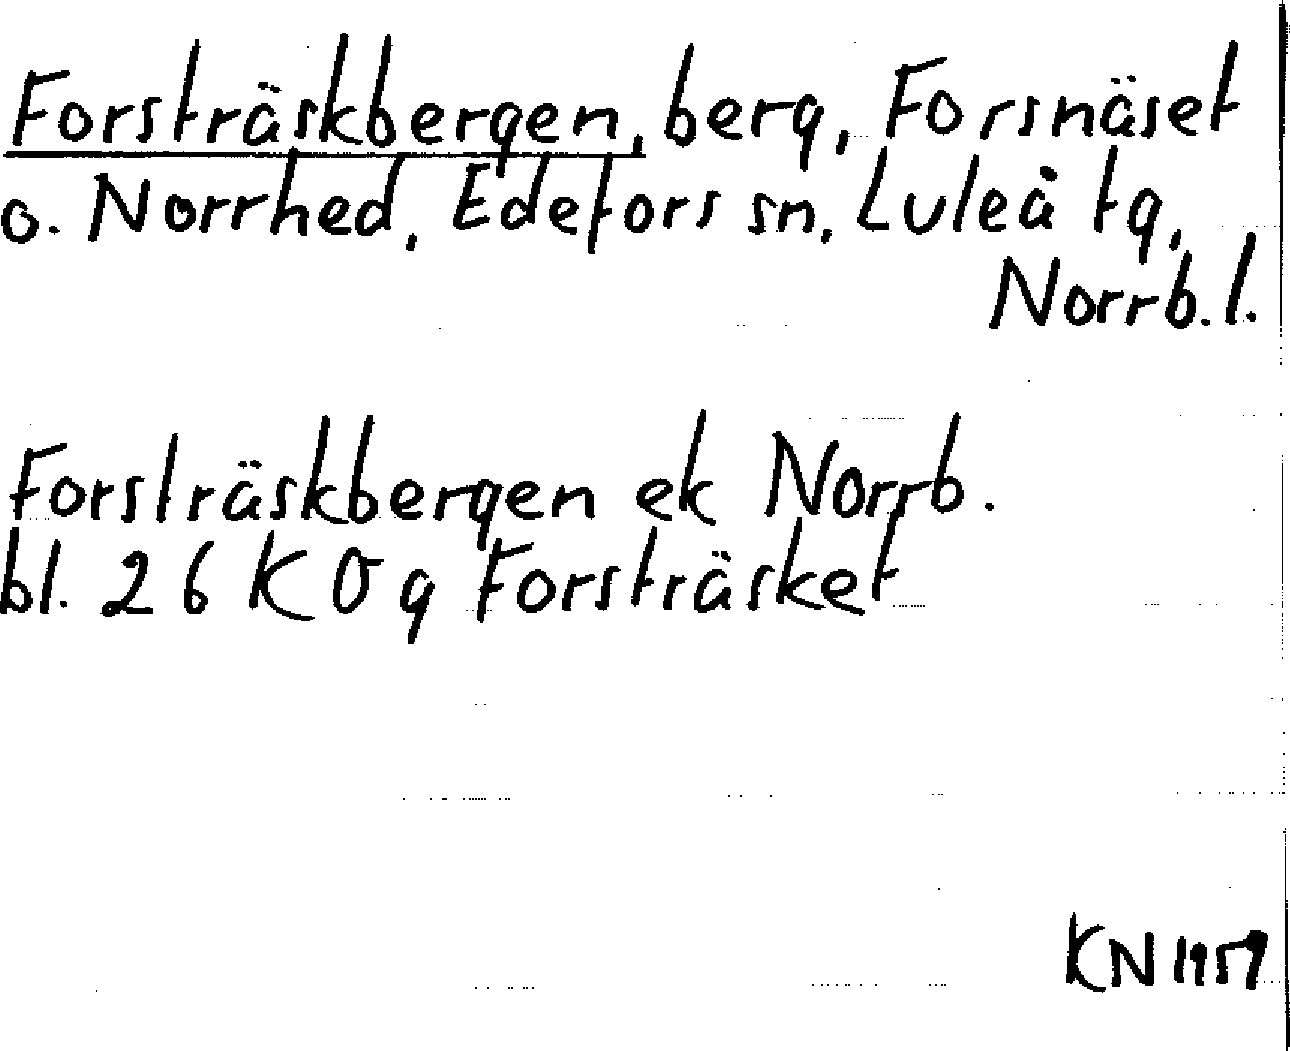 Forsträskbergen, berg, Forsnäset
o. Norrhed, Edefors sn, Luleå tg,
Norrb. l.
Forsträskbergen ek Norrb.
bl. 26 K O g Forsträsket
KN 1959